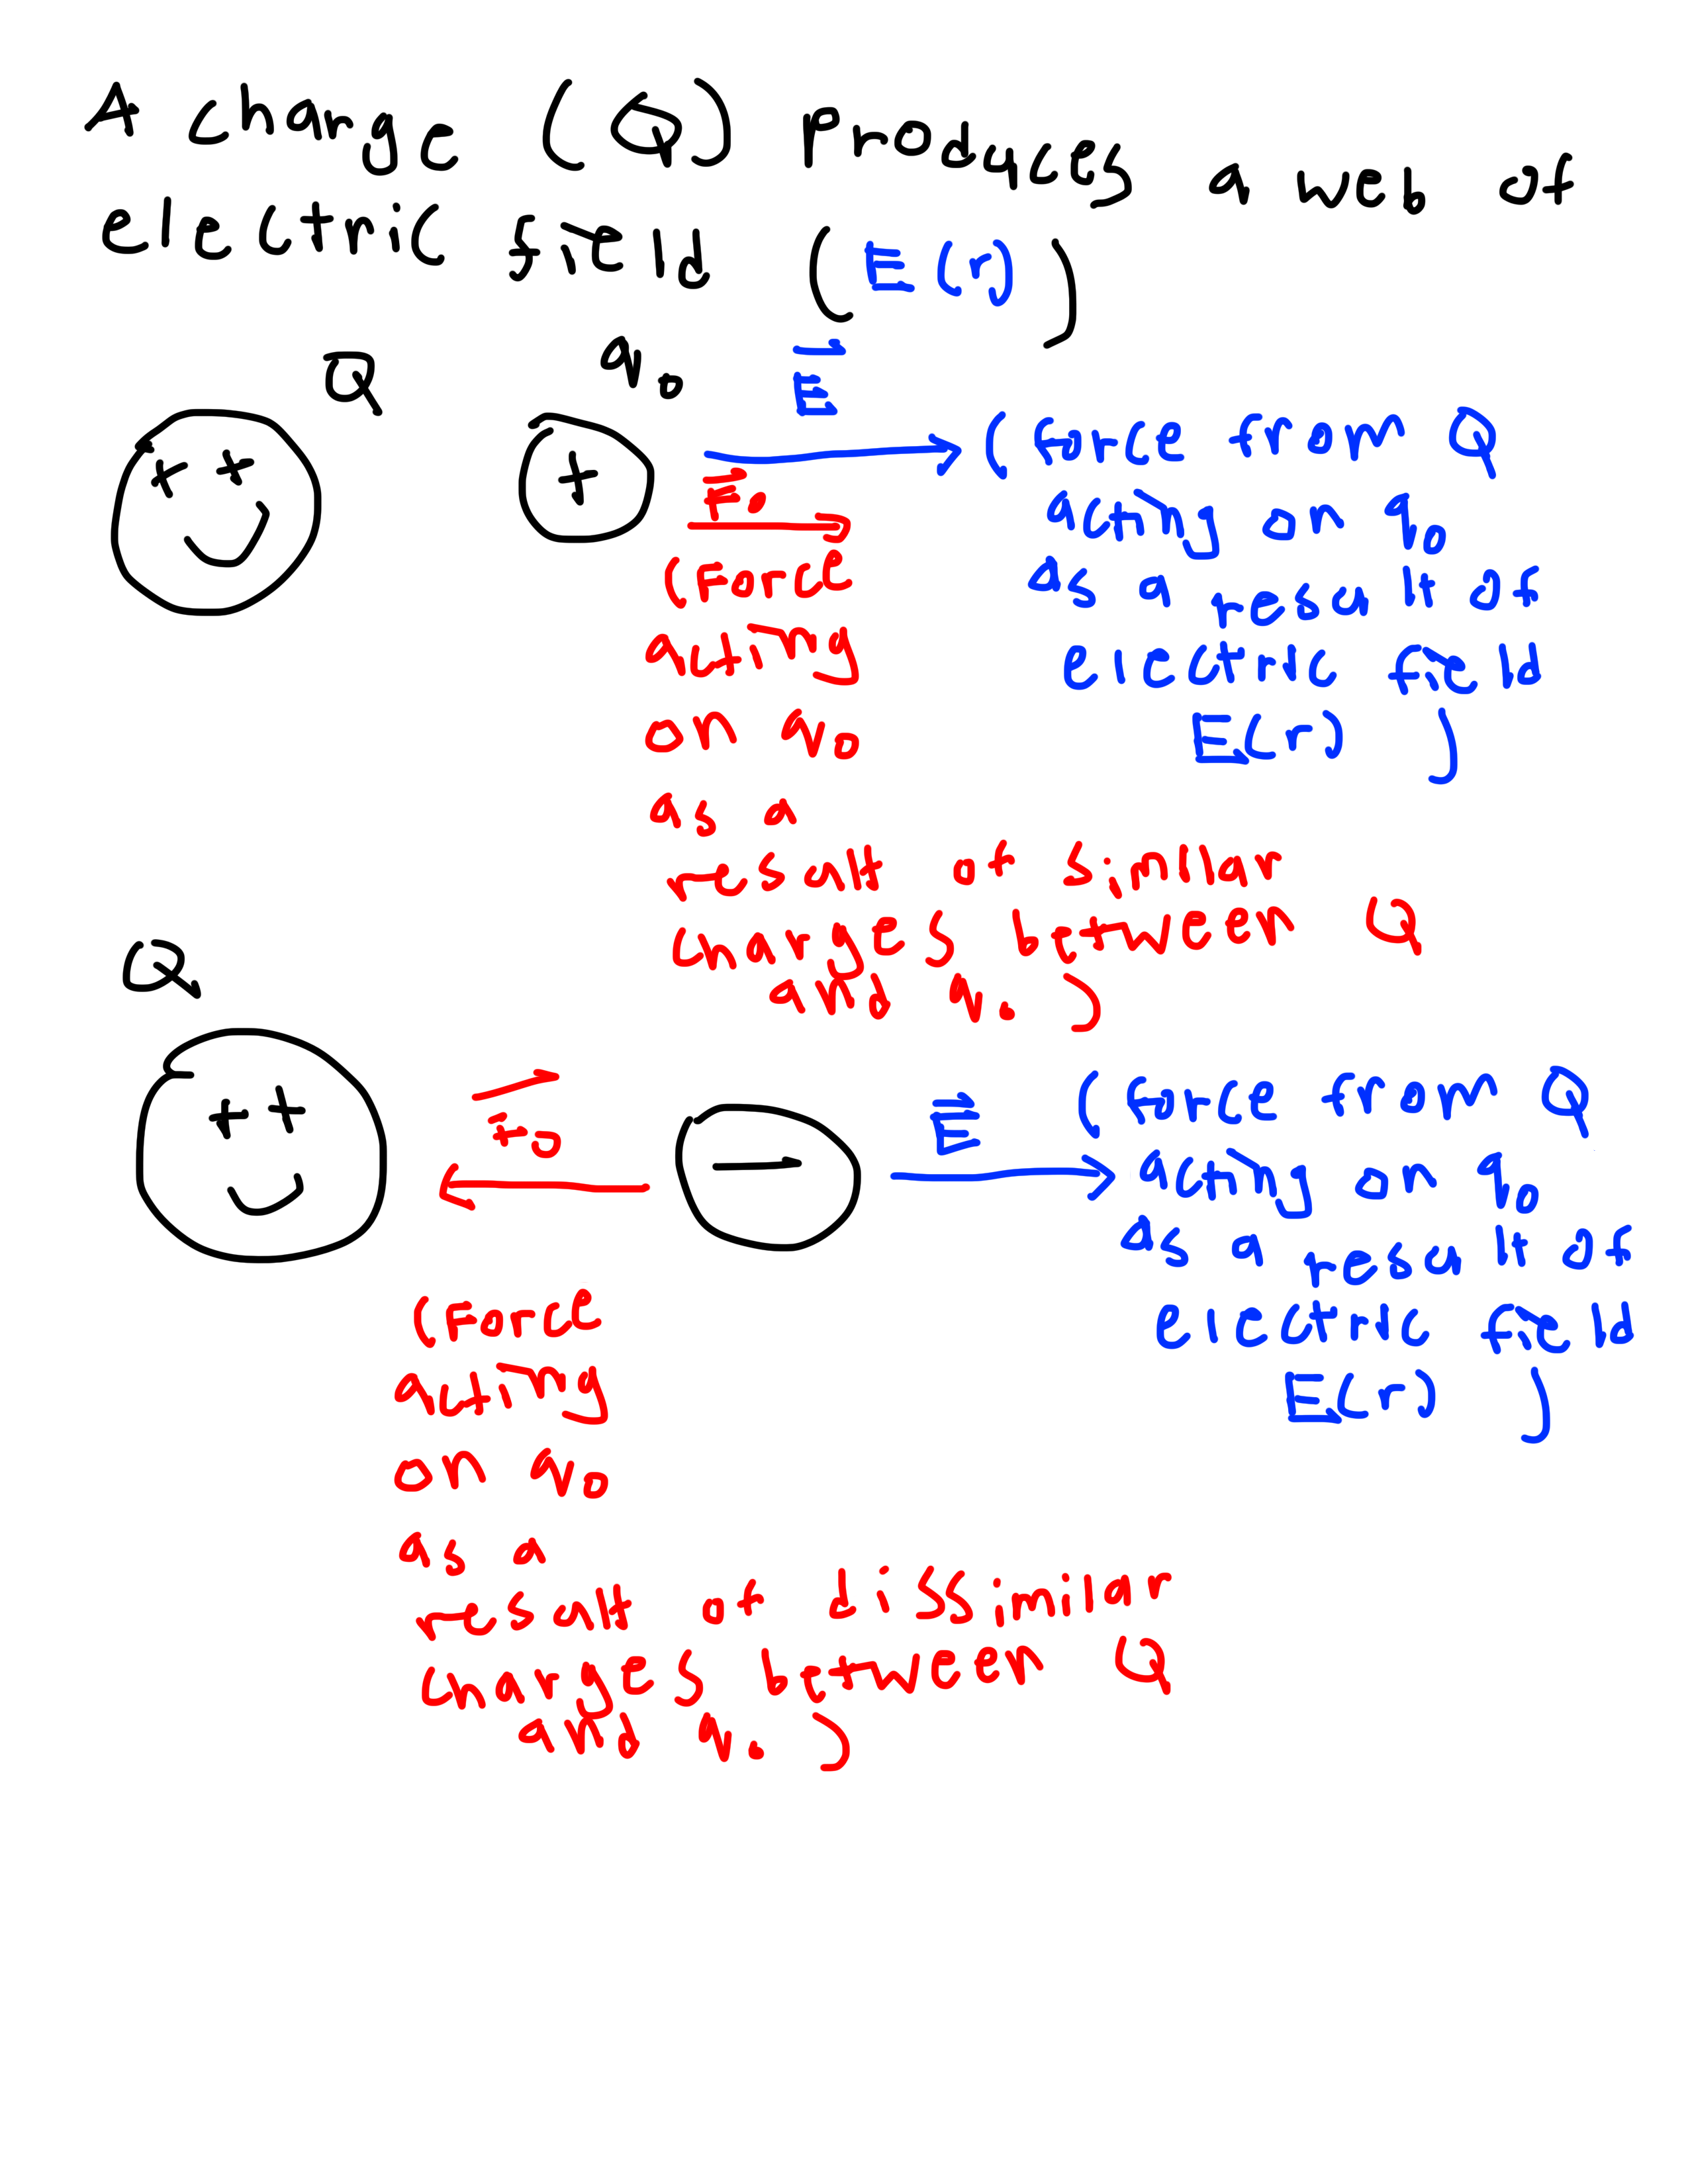 A change (Q) produces a web of
electric field (E(r))
Q q₀ E
+ + +
(Force from Q
acting on q₀
as a result of
electric field
E(r) )
F₀
(Force
acting
on q₀
as a
result of similar
charges between Q
and q₀ )
Q
+ +
F₀
−
E
(Force from Q
acting on q₀
as a result of
electric field
E(r) )
(Force
acting
on q₀
as a
result of dissimilar
charges between Q
and q₀ )